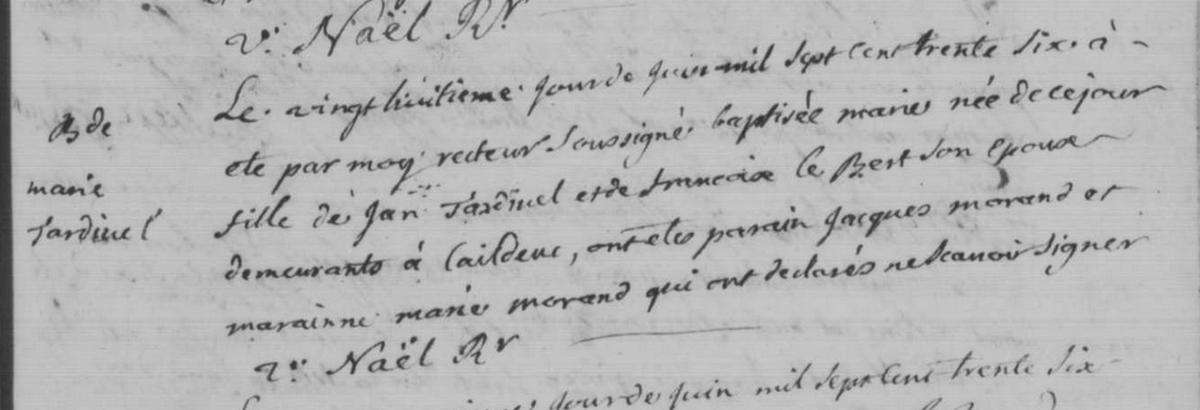 v: Naël Rr
Le vingt huitieme jour de juin mil sept cent trente six à
B de
ete par moy recteur soussigné baptisée marie née de ce jour
marie
fille de Jan Tardivel et de francoise le Bert son epouse
Tardivel
demeurants à Caildeuc, ont etes parain Jacques morand et
marainne marie morand qui ont declarés ne scauoir signer
v: Naël Rr
jour de juin mil sept cent trente six